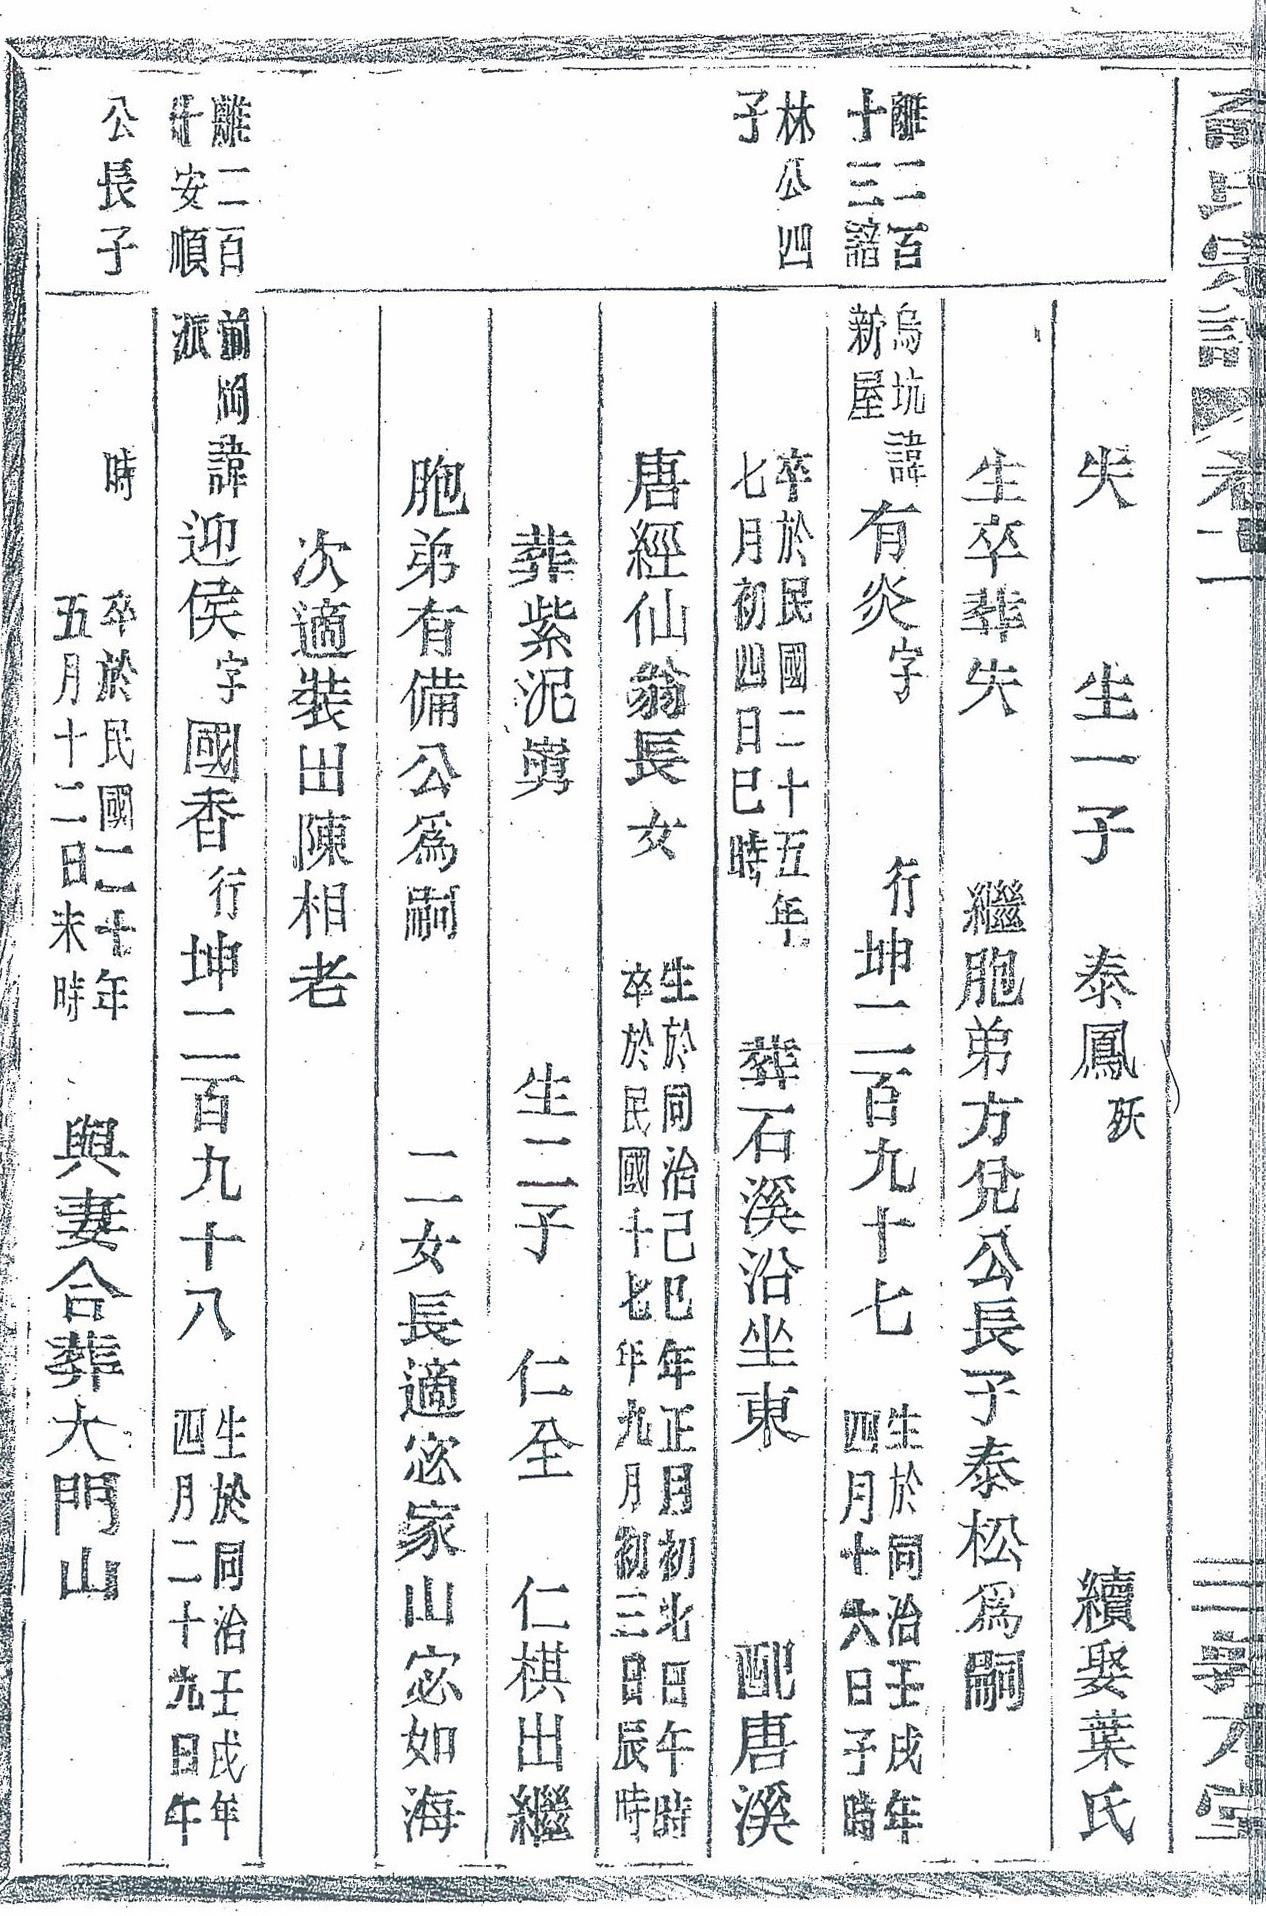 氏宗譜 卷十一
失 生一子 泰鳳 殀 續娶葉氏
生卒葬失 繼胞弟方兌公長子泰松爲嗣
離二百
十三諮
烏坑
新屋
諱有炎字 行坤二百九十七
生於同治壬戌年
四月十六日子時
林公四
子
卒於民國二十五年
七月初四日巳時
葬石溪沿坐東 配唐溪
唐經仙翁長女
生於同治己巳年正月初九日午時
卒於民國十七年九月初三日辰時
葬紫泥塢 生二子 仁全 仁棋出繼
胞弟有備公爲嗣 二女長適宓家山宓如海
次適裝出陳相老
離二百
十安順
前岡
派
諱迎侯字國香行坤二百九十八
生於同治壬戌年
四月二十九日午
公長子
時
卒於民國二十年
五月十二日未時
與妻合葬大門山